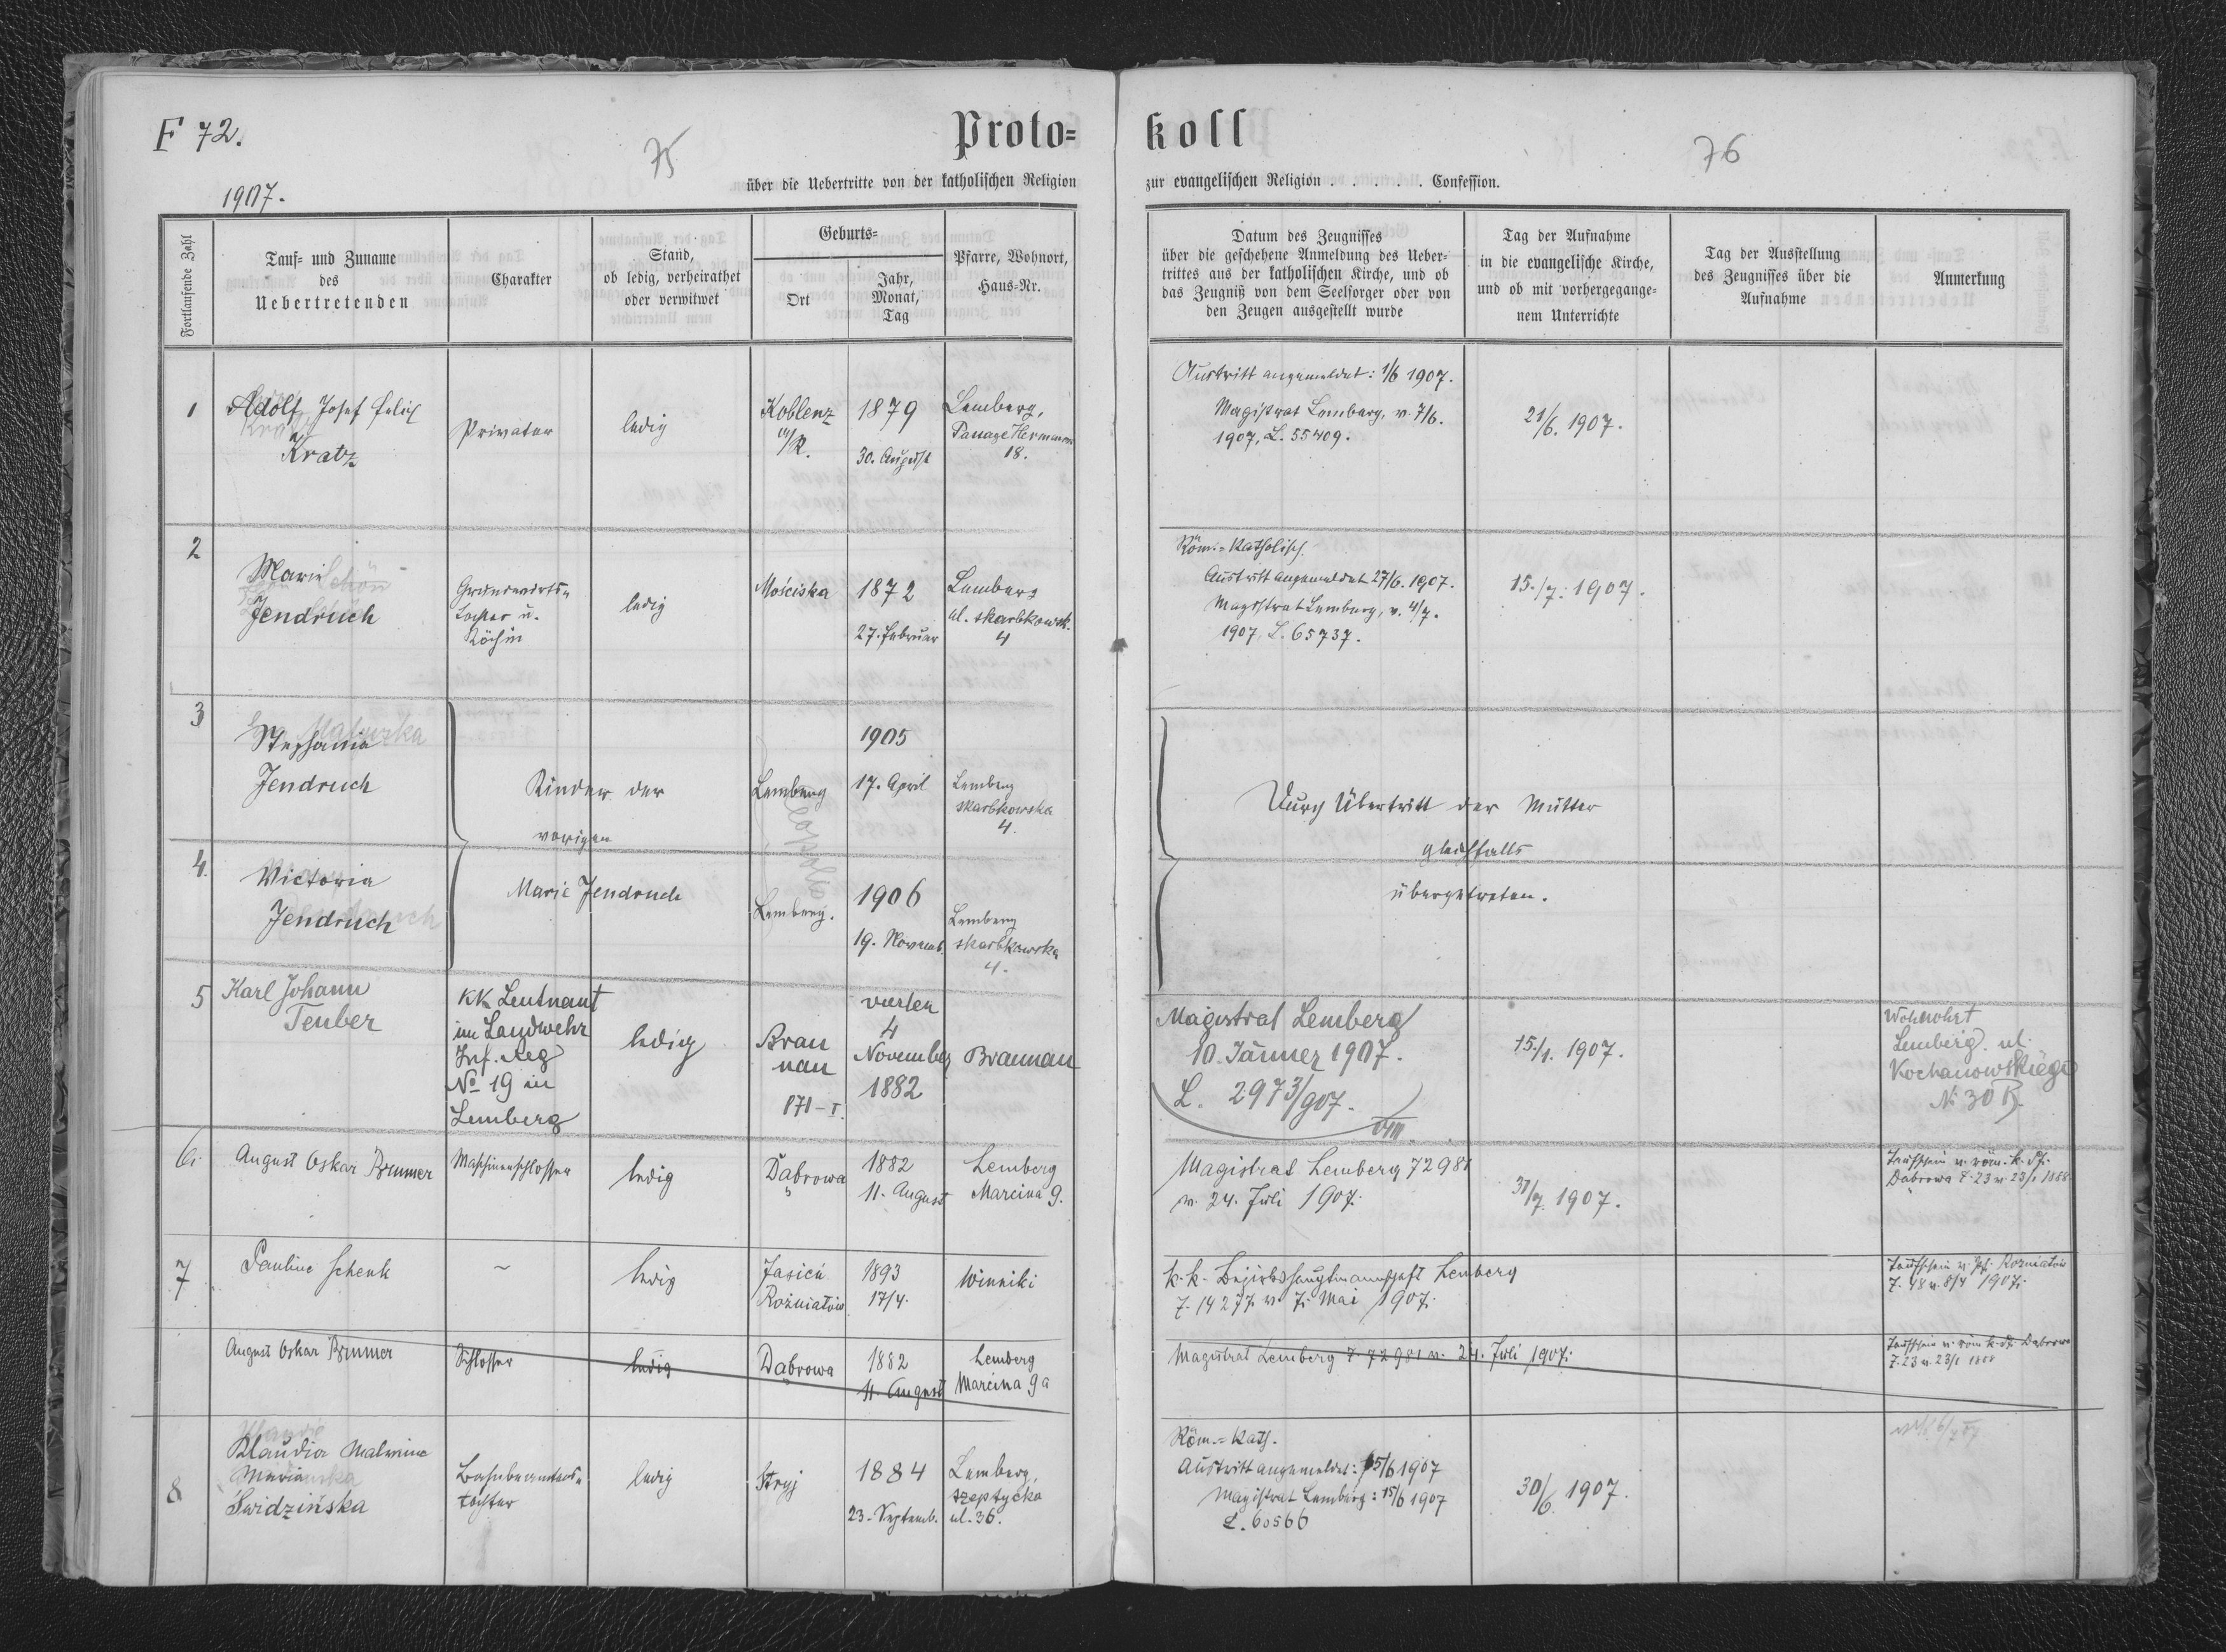 F 72.
75
Proto=
koll
76
1907.
über die Uebertritte von der katholischen Religion
zur evangelischen Religion . . . . . . Confession.
Fortlaufende Zahl
Tauf= und Zuname
des
Uebertretenden
Charakter
Stand,
ob ledig, verheirathet
oder verwitwet
Geburts=
Ort
Jahr,
Monat,
Tag
Pfarre, Wohnort,
Haus=Nr.
Datum des Zeugnisses
über die geschehene Anmeldung des Ueber=
trittes aus der katholischen Kirche, und ob
das Zeugniß von dem Seelsorger oder von
den Zeugen ausgestellt wurde
Tag der Aufnahme
in die evangelische Kirche,
und ob mit vorhergegange=
nem Unterrichte
Tag der Ausstellung
des Zeugnisses über die
Aufnahme
Anmerkung
1
Adolf Josef Felix
Kratz
Privater
ledig
Koblenz
a/R.
1879
30. August
Lemberg,
Passage Hermann
18.
Austritt angemeldet: 1/6 1907.
Magistrat Lemberg, v. 7/6.
1907, L. 55409.
21/6. 1907.
2
Marie
Jendruch
Grundwirts=
tochter u.
Köchin
ledig
Mościska
1872
27. Februar
Lemberg
ul. Skarbkowsk.
4
Röm.=Katholisch.
Austritt angemeldet 27/6. 1907.
Magistrat Lemberg, v. 4/7.
1907, L. 65737.
15./7. 1907.
3
Stephania
Jendruch
Kinder der
vorigen
Lemberg
1905
17. April
Lemberg
Skarbkowska
4.
Durch Übertritt der Mutter
gleichfalls
übergetreten.
4.
Victoria
Jendruch
Marie Jendruch
Lemberg.
1906
19. Novemb.
Lemberg
Skarbkowska
4.
5
Karl Johann
Teuber
KK Leutnant
im Landwehr
Inf. Reg
No 19 in
Lemberg
ledig
Brau
nau
171-I.
vierten
4
November
1882
Braunau
Magistrat Lemberg
10. Jänner 1907.
L. 2973/907.
VIII.
15./1. 1907.
Wohnohrt
Lemberg. ul.
Kochanowskiego
N. 30 B.
6.
August Oskar Brunner
Maschinenschlosser
ledig
Dąbrowa
1882
11. August
Lemberg
Marcina 9.
Magistrat Lemberg 72981
v. 24. Juli 1907.
31/7. 1907.
Taufschein v. röm. k. Pf.
Dąbrowa Z. 23 v. 23/1 1888.
7
Pauline Schenk
~
ledig
Jasień
Rożniatów
1893
17/4.
Winniki
k. k. Bezirkshauptmannschaft Lemberg
Z. 14277. v. 7. Mai 1907.
Taufschein v. Pf. Rozniatów
Z. 48 v. 8/4 1907.
August Oskar Brunner
Schlosser
ledig
Dąbrowa
1882
11. August
Lemberg
Marcina 9a
Magistrat Lemberg Z. 72981 v. 24. Juli 1907.
Taufschein v. röm. k. Pf. Dąbrowa
Z. 23 v. 23/1 1888
8
Klaudia Malwine
Maria
Świdzińska
Bahnbeamtens=
tochter
ledig
Stryj
1884
23. Septemb.
Lemberg,
Szeptycka
ul. 36.
Röm.=Kath.
Austritt angemeldet: 15/6 1907
Magistrat Lemberg: 15/6 1907
L. 60566
30/6. 1907.